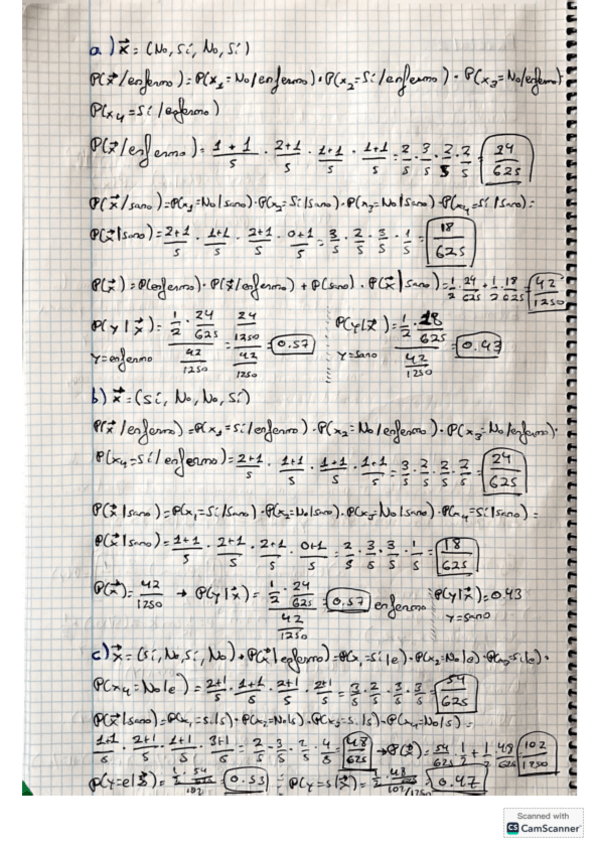 a) x⃗ = (No, Sí, No, Sí)
P(x⃗/enfermo) = P(x₁ = No/enfermo) · P(x₂ = Sí/enfermo) · P(x₃ = No/enfermo) ·
P(x₄ = Sí/enfermo)
P(x⃗/enfermo) = 1+1/5 · 2+1/5 · 1+1/5 · 1+1/5 = 2/5 · 3/5 · 2/5 · 2/5 = 24/625
P(x⃗/sano) = P(x₁=No/sano) · P(x₂=Sí/sano) · P(x₃=No/sano) · P(x₄=Sí/sano) =
P(x⃗|sano) = 2+1/5 · 1+1/5 · 2+1/5 · 0+1/5 = 3/5 · 2/5 · 3/5 · 1/5 = 18/625
P(x⃗) = P(enfermo) · P(x⃗/enfermo) + P(sano) · P(x⃗|sano) = 1/2 · 24/625 + 1/2 · 18/625 = 42/1250
P(y|x⃗) = 1/2 · 24/625 / 42/1250 = 24/1250 / 42/1250 = 0.57
y=enfermo
P(y|x⃗) = 1/2 · 18/625 / 42/1250 = 0.43
y=sano
b) x⃗ = (Sí, No, No, Sí)
P(x⃗/enfermo) = P(x₁ = Sí/enfermo) · P(x₂ = No/enfermo) · P(x₃ = No/enfermo) ·
P(x₄=Sí/enfermo) = 2+1/5 · 1+1/5 · 1+1/5 · 1+1/5 = 3/5 · 2/5 · 2/5 · 2/5 = 24/625
P(x⃗|sano) = P(x₁=Sí|sano) · P(x₂=No|sano) · P(x₃=No|sano) · P(x₄=Sí|sano) =
P(x⃗|sano) = 1+1/5 · 2+1/5 · 2+1/5 · 0+1/5 = 2/5 · 3/5 · 3/5 · 1/5 = 18/625
P(x⃗) = 42/1250 → P(y|x⃗) = 1/2 · 24/625 / 42/1250 = 0.57 enfermo
P(y|x⃗) = 0.43
y=sano
c) x⃗ = (Sí, No, Sí, No) → P(x⃗|enfermo) = P(x₁=Sí|e) · P(x₂=No|e) · P(x₃=Sí|e) ·
P(x₄=No|e) = 2+1/5 · 1+1/5 · 2+1/5 · 2+1/5 = 3/5 · 2/5 · 3/5 · 3/5 = 54/625
P(x⃗|sano) = P(x₁=Sí|s) · P(x₂=No|s) · P(x₃=Sí|s) · P(x₄=No|s) =
1+1/5 · 2+1/5 · 1+1/5 · 3+1/5 = 2/5 · 3/5 · 2/5 · 4/5 = 48/625 → P(x⃗) = 54/625 · 1/2 + 1/2 · 48/625 = 102/1250
P(y=e|x⃗) = 1/2 · 54/625 / 102 = 0.53 P(y=s|x⃗) = 1/2 · 48/625 / 102/1250 = 0.47
Scanned with
CS CamScanner